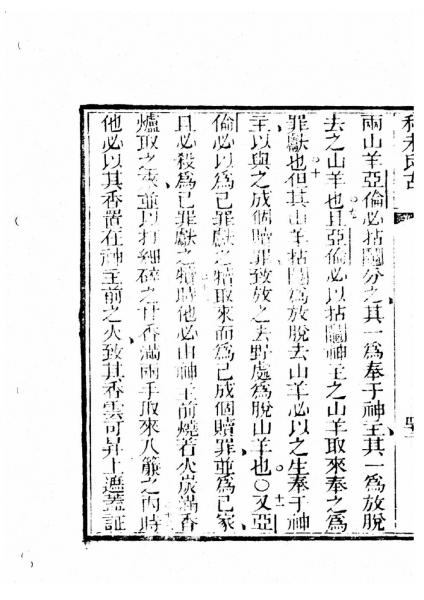 兩山羊亞倫必拈鬮分之其一爲奉于神主其一爲放脫
去之山羊也九且亞倫必以拈鬮神主之山羊取來奉之爲
罪獻也十但其山羊拈鬮爲放脫去山羊必以之生奉于神
主以與之成個贖罪致放之去野處爲脫山羊也○十一又亞
倫必以爲己罪獻之犢取來而爲己成個贖罪並爲己家
且必殺爲己罪獻之犢時他必由神主前燒着火炭滿香
爐取之來並以打細碎之其香滿兩手取來入簾之內時
他必以其香置在神主前之火致其香雲可昇上遮蓋証